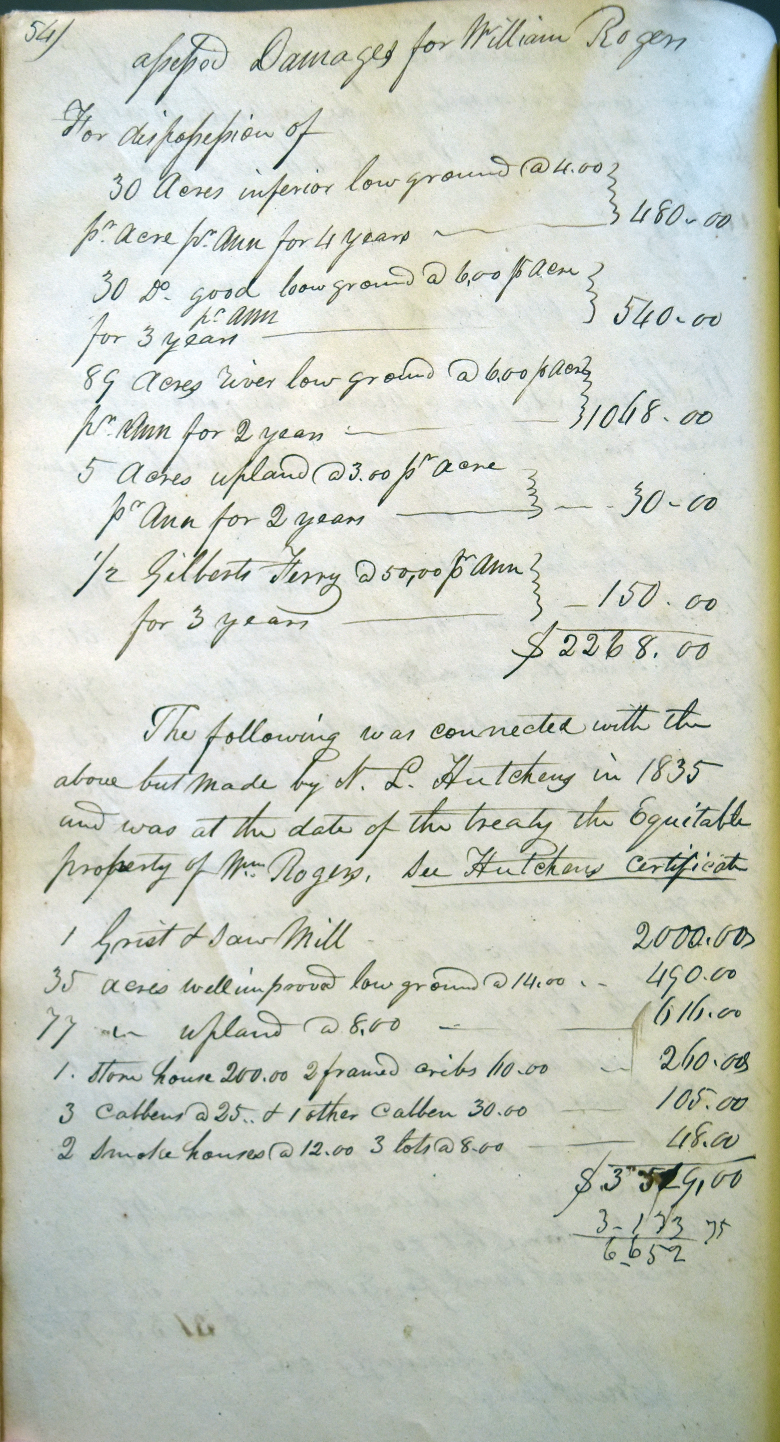 54)
assessed Damages for William Rogers
For dispossession of
30 Acres inferior low ground @ 4.00
pr. Acre pr. Ann for 4 years 480.00
30 Do. good low ground @ 6,00 pr Acre
pr Ann
for 3 years 540.00
89 Acres River low ground @ 6.00 pr Acre
pr. Ann for 2 years 1068.00
5 Acres upland @ 3.00 pr Acre
pr Ann for 2 years 30.00
1/2 Gilberts Ferry @ 50,00 pr Ann
for 3 years 150.00
$2268.00
The following was connected with the
above but made by N. L. Hutchens in 1835
and was at the date of the treaty the Equitable
property of Wm Rogers. See Hutchens certificate
1 Grist & Saw Mill 2000.00
35 acres well improved low ground @ 14.00 490.00
77 " upland @ 8.00 616.00
1. Store house 200.00 2 framed cribs 60.00 260.00
3 Cabbens @ 25.. & 1 other Cabben 30.00 105.00
2 Smoke houses @ 12.00 3 lots @ 8.00 48.00
$3519,00
3-133 75
6652